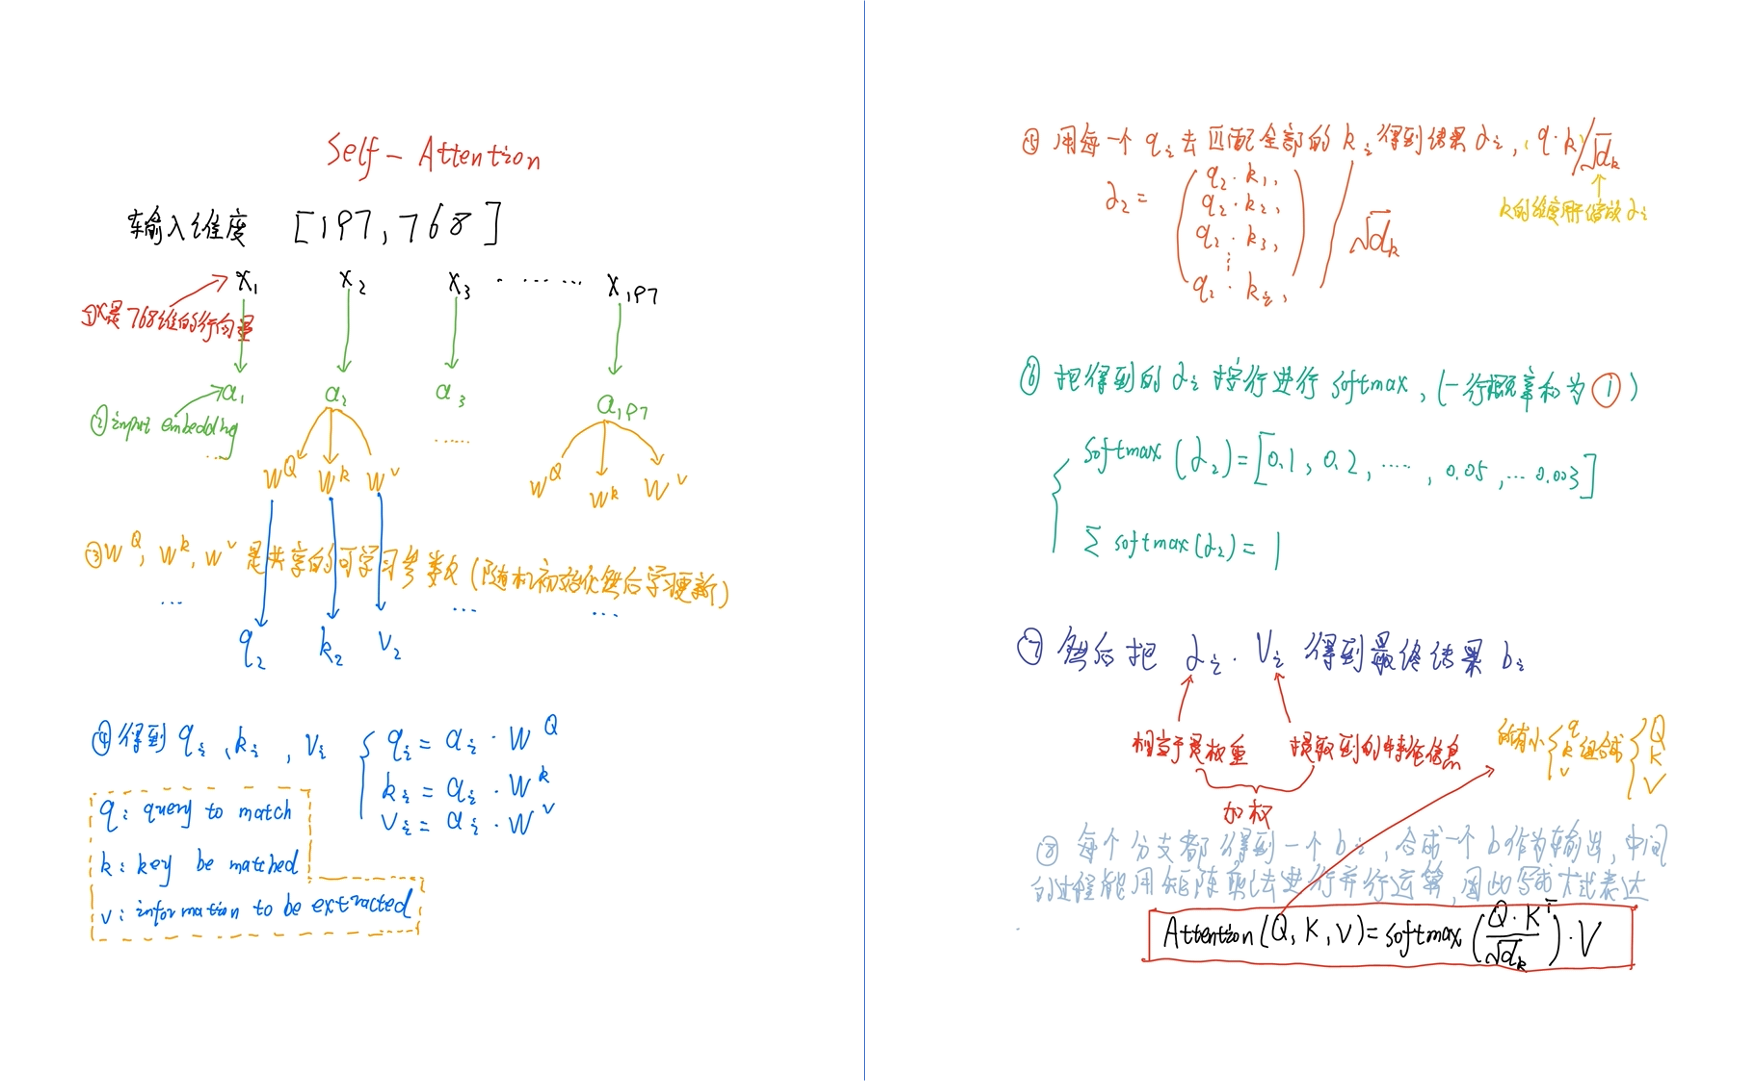 Self-Attention
输入维度 [197,768]
x₁ x₂ x₃ ······ x₁₉₇
①x是768维的行向量
a₁ a₂ a₃ a₁₉₇
②input embedding
...
......
W^Q W^k W^v
W^Q W^k W^v
③W^Q, W^k, W^v 是共享的可学习参数(随机初始化然后学习更新)
... ... ...
q₂ k₂ v₂
④得到 qᵢ、kᵢ, vᵢ
qᵢ = aᵢ · W^Q
kᵢ = aᵢ · W^k
vᵢ = aᵢ · W^v
q: query to match
k: key be matched
v: information to be extracted
⑤ 用每一个 qᵢ 去匹配全部的 kᵢ 得到结果 αᵢ, q·k/√dₖ
α₂ = (q₂·k₁, q₂·k₂, q₂·k₃, ⋮ q₂·kᵢ,) / √dₖ
k的维度用于缩放 αᵢ
⑥ 把得到的 αᵢ 按行进行 softmax, (一行概率和为 1)
softmax(α₂) = [0.1, 0.2, ····· , 0.05, ... 0.003]
Σ softmax(α₂) = 1
⑦ 然后把 αᵢ · Vᵢ 得到最终结果 bᵢ
相当于是权重
提取到的特征信息
加权
所有小 q k v 组合成 Q K V
⑧ 每个分支都得到一个 bᵢ, 合成一个 b作为输出, 中间
的过程能用矩阵乘法进行并行运算, 因此写成大式表达
Attention(Q, K, V) = softmax(Q·K^T/√dₖ)·V